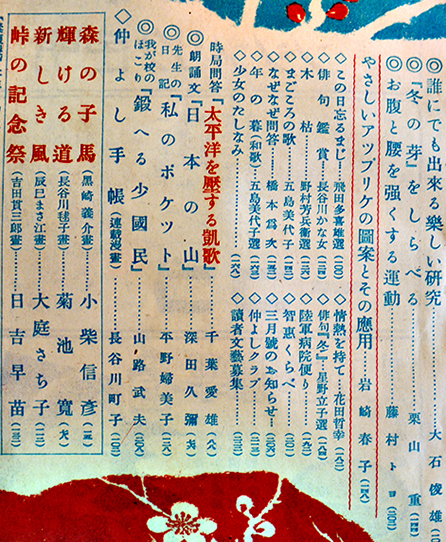 ◎誰にでも出來る樂しい研究……大石俊雄
◎「冬の芽」をしらべる……栗山重
◎お腹と腰を強くする運動……藤村トヨ
やさしいアップリケの圖案とその應用……岩崎春子
◇この日忘るまじ…飛田多喜雄選
◇俳句鑑賞…長谷川かな女
◇木枯……野村芳兵衞選
◇まごころの歌……五島美代子
◇なぜなぜ問答……橋本爲次
◇年の暮(和歌)…五島美代子選
◇少女のたしなみ
◇情熱を持て…花田哲幸
◇俳句「冬」…星野立子選
◇陸軍病院便り
◇智惠くらべ
◇三月號のお知らせ
◇仲よしクラブ
◇讀者文藝募集
時局問答「太平洋を壓する凱歌」……千葉愛雄
◎朗誦文「日本の山」……深田久彌
◎先生の日記「私のポケット」……平野婦美子
◎我が校のほこり「鍛へる少國民」……山路武夫
◇仲よし手帳(連載漫畫)……長谷川町子
森の子馬(黑崎義介畫)……小柴信彥
輝ける道(長谷川毬子畫)……菊池寬
新しき風(辰巳まさ江畫)……大庭さち子
峠の記念祭(吉田貫三郎畫)……日吉早苗